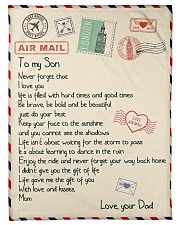 AIR MAIL
To my Son
Never forget that
I love you
life is filled with hard times and good times
Be brave, be bold and be beautiful
just do your best
Keep your face to the sunshine
and you cannot see the shadows
Life isn't about waiting for the storm to pass
It's about learning to dance in the rain
Enjoy the ride and never forget your way back home
I didn't give you the gift of life
Life gave me the gift of you
With love and kisses,
Mom
Love, your Dad